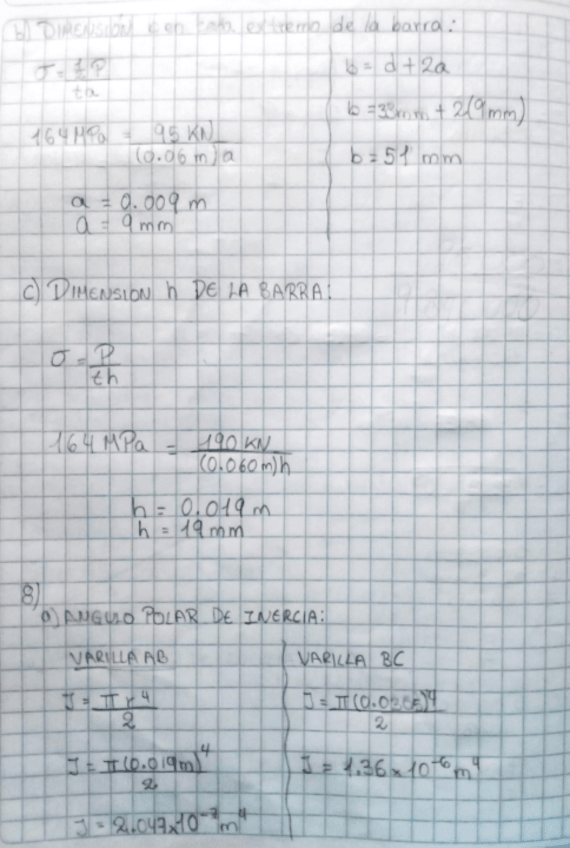 b) DIMENSIÓN en cada extremo de la barra:
σ = ½P / ta
164 MPa = 95 KN / (0.06 m)a
a = 0.009 m
a = 9 mm
b = d + 2a
b = mm + 2(9mm)
b = 51 mm
c) DIMENSION h DE LA BARRA:
σ = P / th
164 MPa = 190 KN / (0.060m)h
h = 0.019 m
h = 19 mm
8)
a) ANGULO POLAR DE INERCIA:
VARILLA AB
J = πr⁴ / 2
J = π(0.019m)⁴ / 2
J = 2.047x10⁻⁷m⁴
VARILLA BC
J = π( )⁴ / 2
J = 1.36x10⁻⁶m⁴